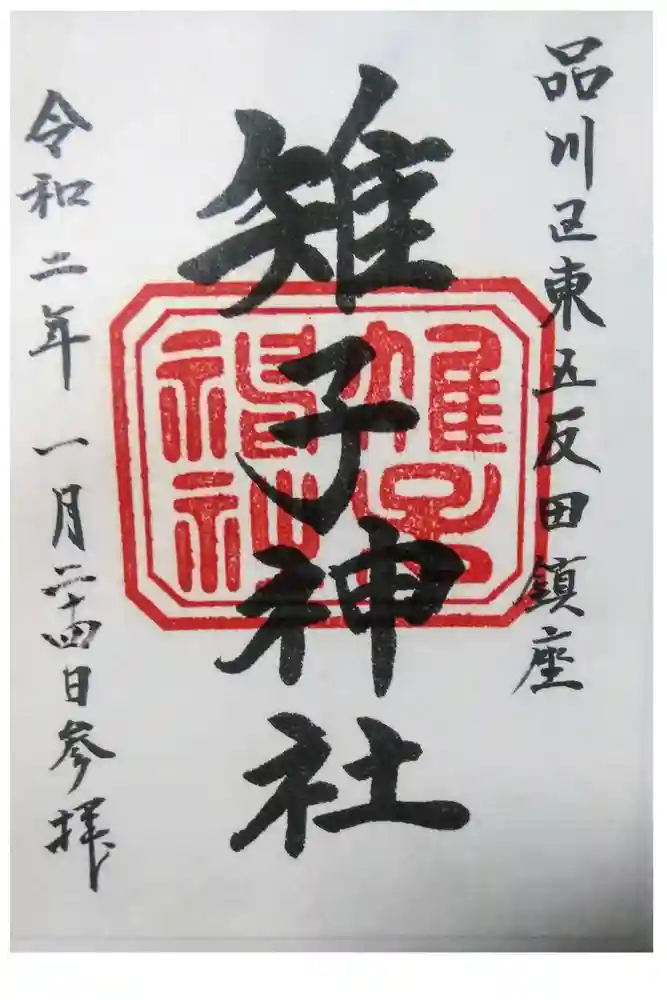 品川区東五反田鎮座
雉子神社
雉子神社
令和二年一月二十四日参拝